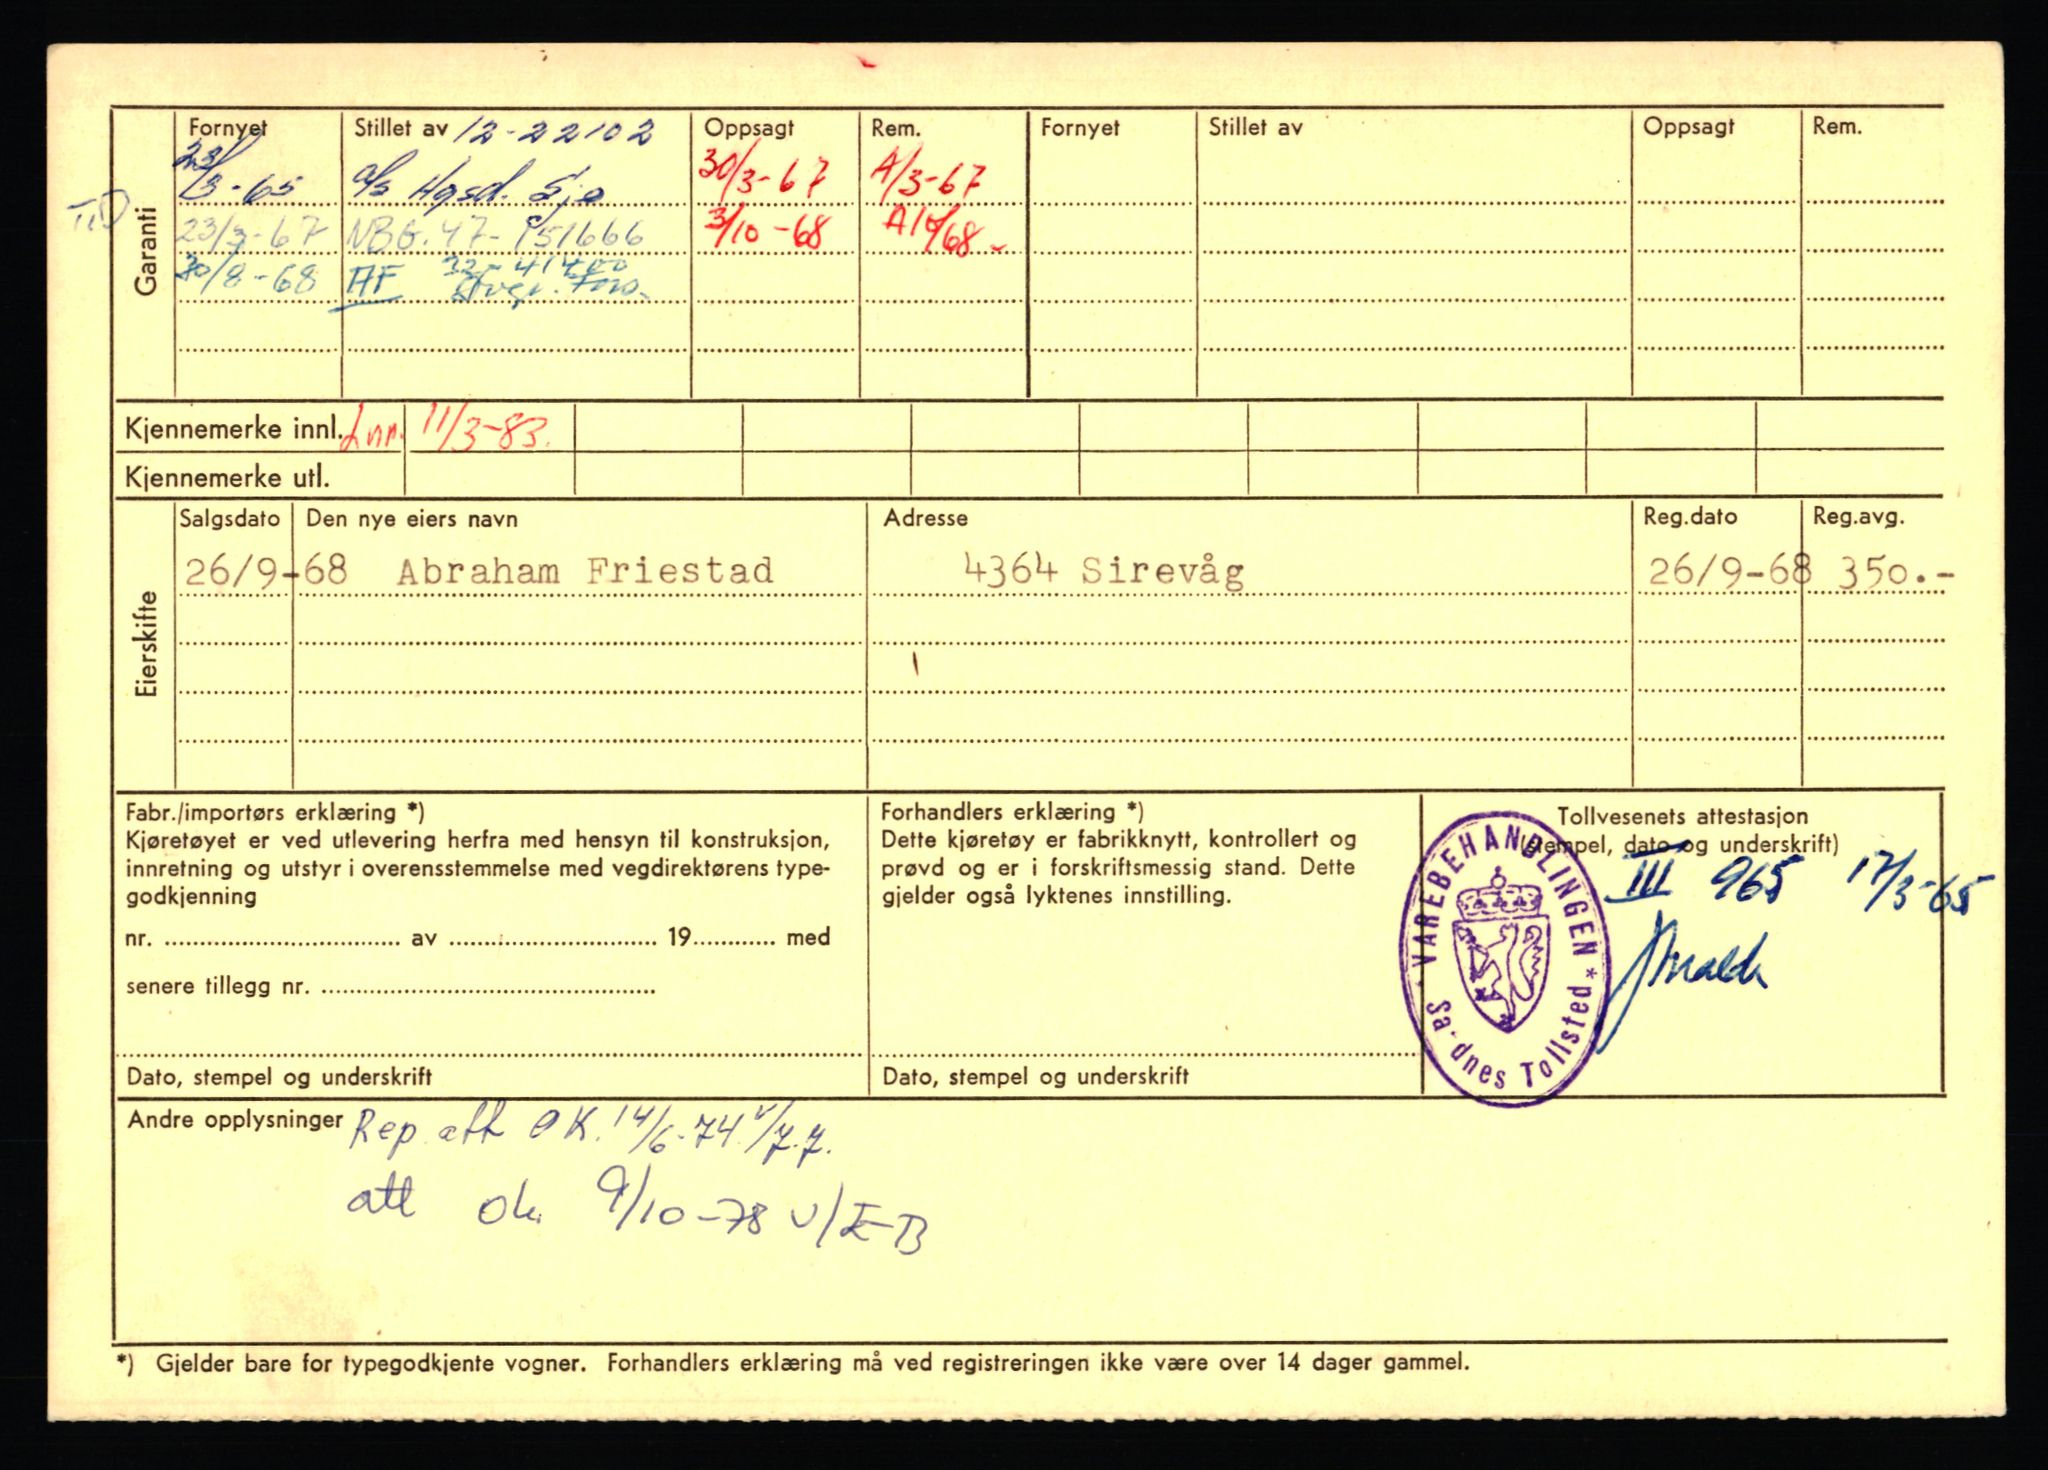 Garanti
Fornyet Stillet av 12-22102 Oppsagt Rem. Fornyet Stillet av Oppsagt Rem.
23/3-65 a/s Hgsd. Sjø 30/3-67 A/3-67
23/3-67 NBG. 47- 151666 3/10-68 A10/68-
30/8-68 AF
Kjennemerke innl. Inn. 11/3-83.
Kjennemerke utl.
Eierskifte
Salgsdato Den nye eiers navn Adresse Reg.dato Reg.avg.
26/9-68 Abraham Friestad 4364 Sirevåg 26/9-68 350.-
Fabr./importørs erklæring *)
Kjøretøyet er ved utlevering herfra med hensyn til konstruksjon,
innretning og utstyr i overensstemmelse med vegdirektørens type-
godkjenning
nr. .......... av .......... 19.......... med
senere tillegg nr. ..........
Dato, stempel og underskrift
Forhandlers erklæring *)
Dette kjøretøy er fabrikknytt, kontrollert og
prøvd og er i forskriftsmessig stand. Dette
gjelder også lyktenes innstilling.
Dato, stempel og underskrift
Tollvesenets attestasjon
(stempel, dato og underskrift)
III 965 17/3-65
VAREBEHANDLINGEN
Sa dnes Tollsted
Andre opplysninger Rep. att OK. 14/6-74 v/J.J.
att ok 9/10-78 v/E-B
*) Gjelder bare for typegodkjente vogner. Forhandlers erklæring må ved registreringen ikke være over 14 dager gammel.